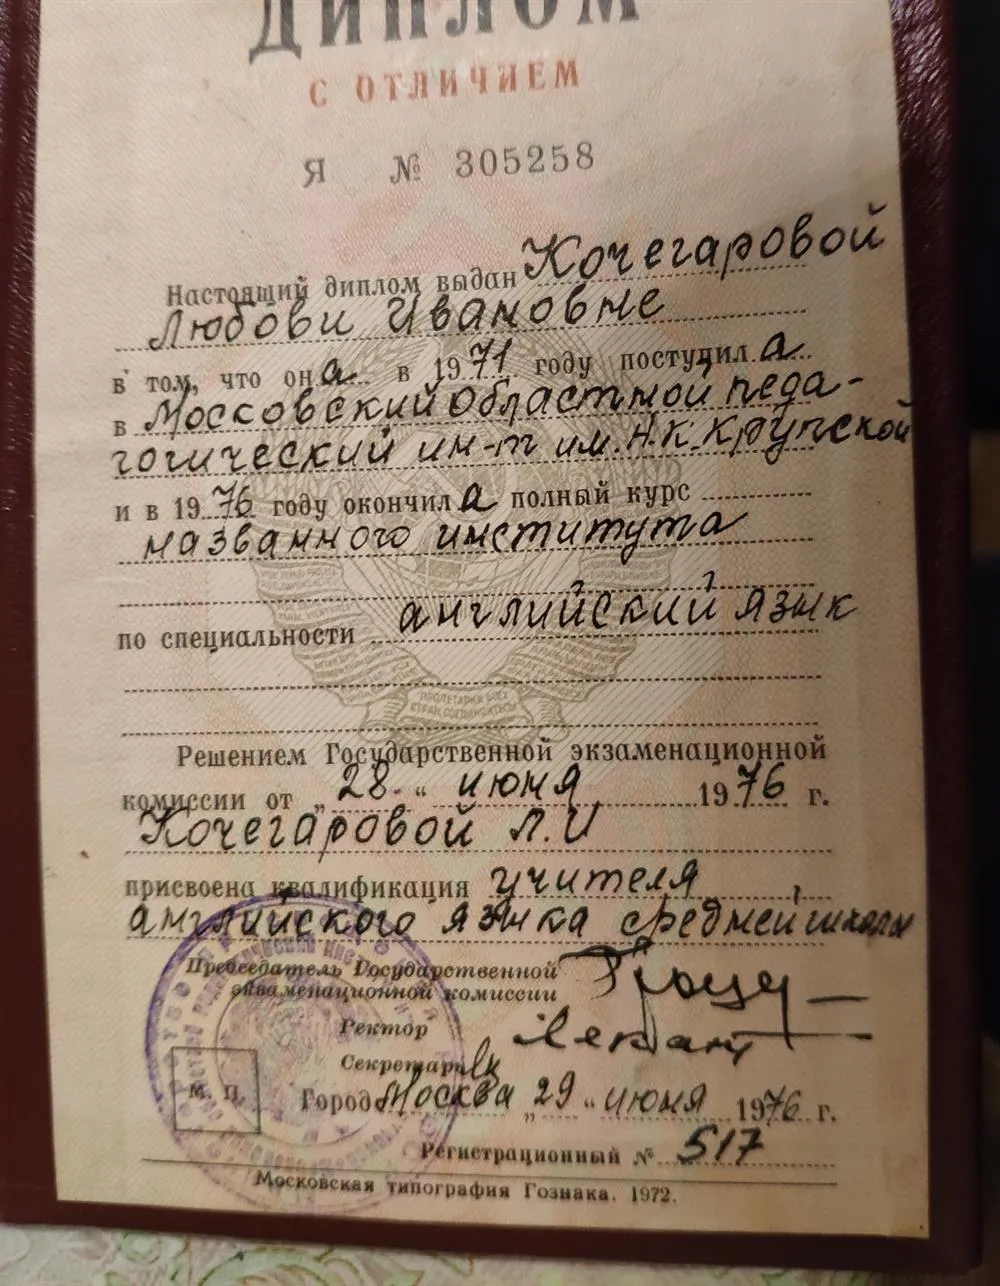 ДИПЛОМ
С ОТЛИЧИЕМ
Я № 305258
Настоящий диплом выдан Кочегаровой
Любови Ивановне
в том, что он а в 1971 году поступил а
в Московский областной педа-
гогический ин-т им. Н.К. Крупской
и в 1976 году окончил а полный курс
названного института
по специальности английский язык
ПРОЛЕТАРИИ ВСЕХ
СТРАН, СОЕДИНЯЙТЕСЬ!
Решением Государственной экзаменационной
комиссии от „28" июня 1976 г.
Кочегаровой Л.И
присвоена квалификация учителя
английского языка средней школы
Председатель Государственной
экзаменационной комиссии
Ректор
Секретарь
М. П.
Город Москва „29" июня 1976 г.
Регистрационный № 517
Московская типография Гознака. 1972.